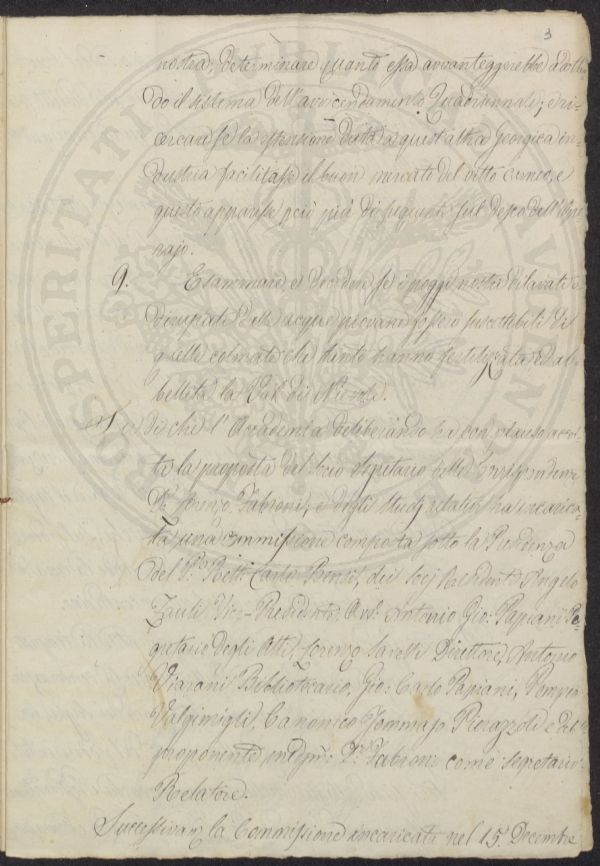 3
nostra; determinare quanto essa avvanteggerebbe adottan
do il sistema dell'avvicendamento Quadriennale; e ri-
cercare se la estensione data a quest'altra georgica in-
dustria facilitasse il buon mercato del vitto carneo, e
questo apparisse poi più di seguente sul desco dell'Ope
rajo.
9. Esaminare e decidere se i poggi nostri dilavati e
dirupati dalle acque piovane fossero suscettibili di
quelle colmate che tanto hanno fertilizzata ed ab-
bellita la Val di Nievole.
di che l'Accademia deliberando ha con plauso accol-
ta la proposta del Socio Segretario delle Corrispondenze
Dr. Lorenzo Fabroni, e degli studj relativi ha incarica-
ta una commissione composta sotto la Presidenza
del Pr. Carlo dei Socj Residenti Angelo
Zauli Vice-Presidente, Avv. Antonio Gio. Papiani Se-
gretario degli Atti, Lorenzo Savelli Direttore, Antonio
Viarani Bibliotecario, Gio: Carlo Papiani, Pompeo
Valgimigli, Canonico Tommaso Pierazzoli e dal
proponente Dr. Fabroni come Segretario
Relatore.
Successivam. la Commissione incaricata nel 15. Decembre
PROSPERITATI PUBLICAE